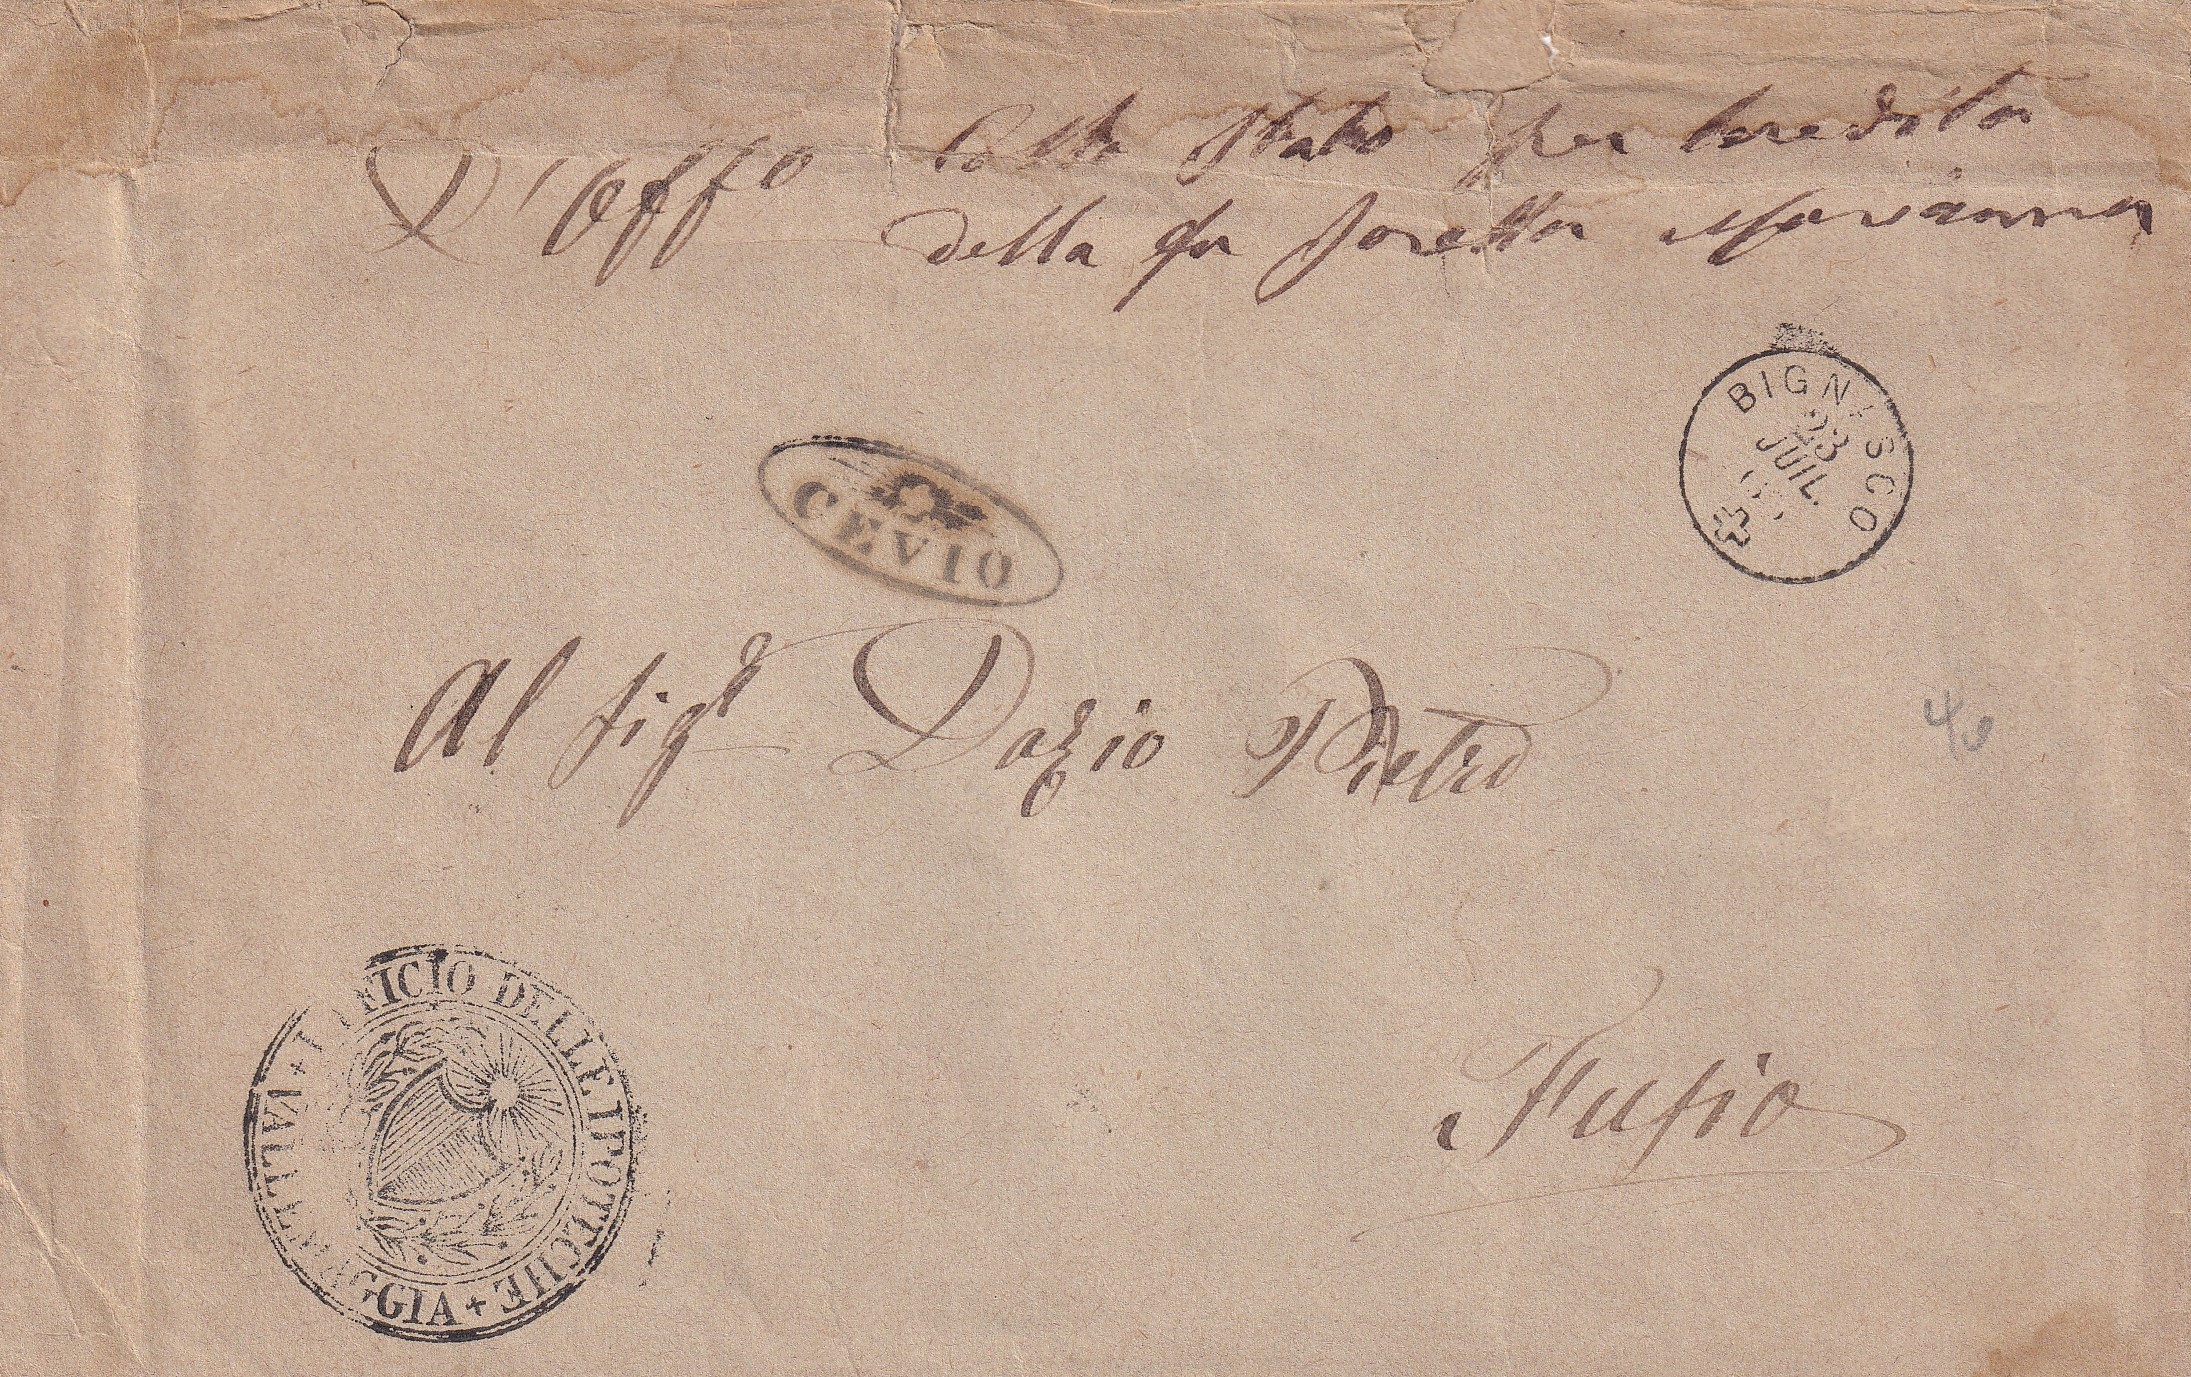 D'Uffo
Stato per eredità
della fu Marianna
BIGNASCO
23
JUIL
CEVIO
Al Sigr Dazio Pietro
40
Fusio
UFFICIO DELLE IPOTECHE
VALLEMAGGIA